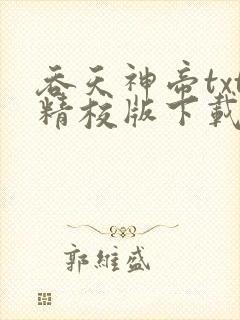 吞天神帝txt
精校版下載
郭維盛